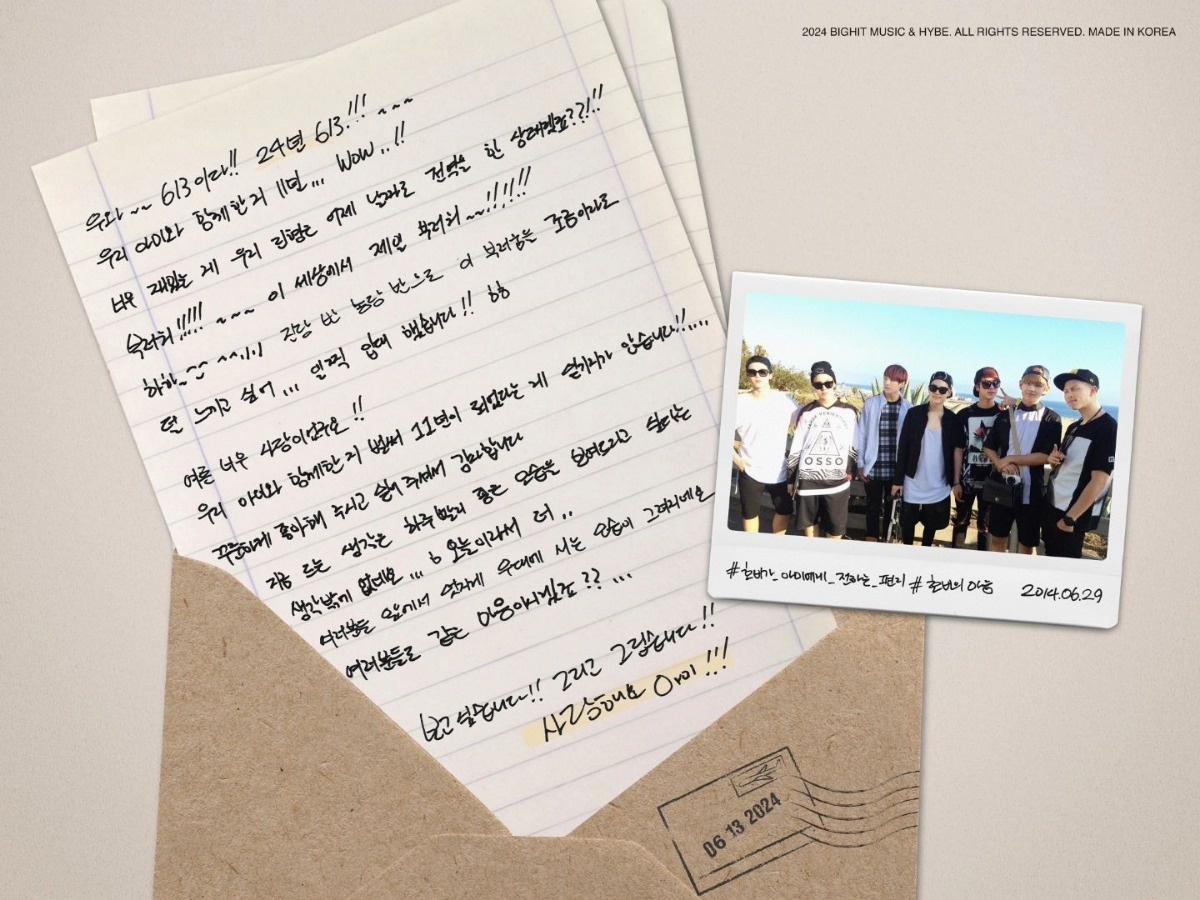 2024 BIGHIT MUSIC & HYBE. ALL RIGHTS RESERVED. MADE IN KOREA
우와~~ 613이다!! 24년 613!!! ~~~
우리 아미와 함께한지 11년... Wow..!!
너무 재밌는 게 우리 진형은 어제 날짜로 전역을 한 상태겠죠??!!!
부러워!!!!! ~~~ 이 세상에서 제일 부러워~~!!!!!!
하하~^^ ^^;;; 진담 반 농담 반으로 이 부러움을 조금이라도
덜 느끼고 싶어... 일찍 입대 했습니다!! ㅎㅎ
여튼 너무 사랑이구요!!
우리 아미와 함께한 지 벌써 11년이 되었다는 게 믿기지가 않습니다!!....
꾸준하게 좋아해 주시고 있어 주셔서 감사합니다
지금 드는 생각은 하루빨리 좋은 모습을 보여드리고 싶다는
생각밖에 없네요... 6 오늘이라서 더..
여러분들 앞에서 멋지게 무대에 서는 모습이 그려지네요
여러분들도 같은 마음이시겠죠??...
보고 싶습니다!! 그리고 그립습니다!!
사랑해요 아미!!!
OSSO
#호비가_아미에게_전하는_편지 #호비의 마음 2014.06.29
06 13 2024